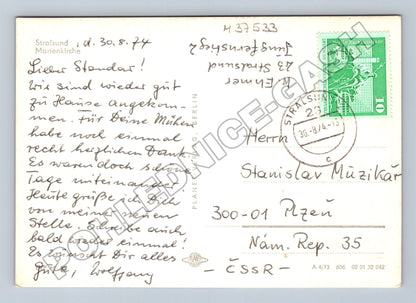 Stralsund
Marienkirche
, d. 30.8.74
Lieber Standar!
Wir sind wieder gut
zu Hause angekom-
men. Für Deine Mühen
habe noch einmal
recht herzlichen Dank.
Es waren doch schöne
Tage miteinander.
Heute grüße ich Dich
von meiner
Stelle. Schreibe auch
bald wieder einmal!
Es wünscht Dir alles
Gute, Wolfgang
PLANET BERLIN
437533
W. Ehmer
23 Stralsund
Jungfernstieg 2
STRALSUND
23
30.-8.74-13
c
10
Herrn
Stanislav Muzikář
300-01 Plzeň
Nám. Rep. 35
- ČSSR -
A 4/73 606 02 01 32 042
POHLEDNICE-GASH